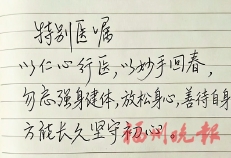 特别医嘱
以仁心行医，以妙手回春，
勿忘强身健体，放松身心，善待自身
方能长久坚守初心。
福州晚报